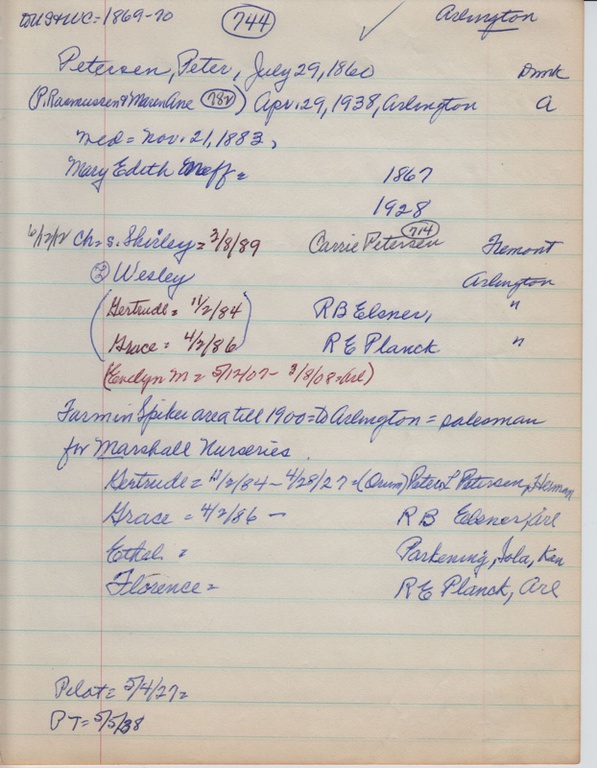 to US+WC=1869-70 744 Arlington
Petersen, Peter, July 29, 1860 Dmk
(P. Rasmussen & Maren Ane 782) Apr. 29, 1938, Arlington A
Med = Nov. 21, 1883,
Mary Edith Neff = 1867
1928
6/12/12 Ch = s. Shirley = 3/8/89 Carrie Petersen 714 Fremont
② Wesley Arlington
(Gertrude = 11/2/84) RB Elsner, "
(Grace = 4/2/86) R E Planck "
(Evelyn M = 5/12/07 - 3/8/08 = Arl)
Farm in Spiker area till 1900 = to Arlington = salesman
for Marshall Nurseries.
Gertrude = 11/2/84 - 4/28/27 = (Orum) Peter L Petersen, Herman
Grace = 4/2/86 - R B Elsner, Arl
Ethel = Parkening, Iola, Kan
Florence = R E Planck, Arl
Pilot = 5/4/27 =
PT = 5/5/38